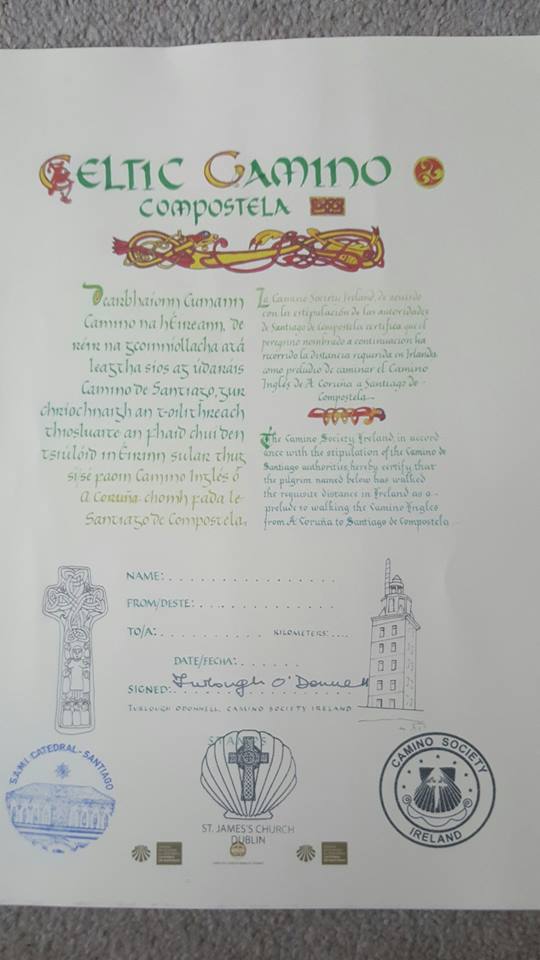 CELTIC CAMINO
COMPOSTELA
Dearbhaíonn Cumann
Camino na hÉireann, de
réir na gcoinníollacha atá
leagtha síos ag údaráis
Camino de Santiago, gur
chríochnaigh an t-oilithreach
thíosluaite an fhaid chuí den
tsiúlóid in Éirinn sular thug
sí/sé faoin Camino Inglés ó
A Coruña chomh fada le
Santiago de Compostela.
La Camino Society Ireland, de acuerdo
con la estipulación de las autoridades
de Santiago de Compostela certifica que el
peregrino nombrado a continuación ha
recorrido la distancia requerida en Irlanda
como preludio de caminar el Camino
Inglés de A Coruña a Santiago de
Compostela
The Camino Society Ireland in accord
ance with the stipulation of the Camino de
Santiago authorities, hereby certify that
the pilgrim named below has walked
the requisite distance in Ireland as a
prelude to walking the Camino Ingles
from A Coruña to Santiago de Compostela
NAME:
FROM/DESTE:
TO/A: KILOMETERS:
DATE/FECHA:
SIGNED: Turlough O'Donnell
TURLOUGH ODONNELL, CAMINO SOCIETY IRELAND
S.A.M.I. CATEDRAL - SANTIAGO
ST. JAMES'S CHURCH
DUBLIN
CAMINO SOCIETY
IRELAND